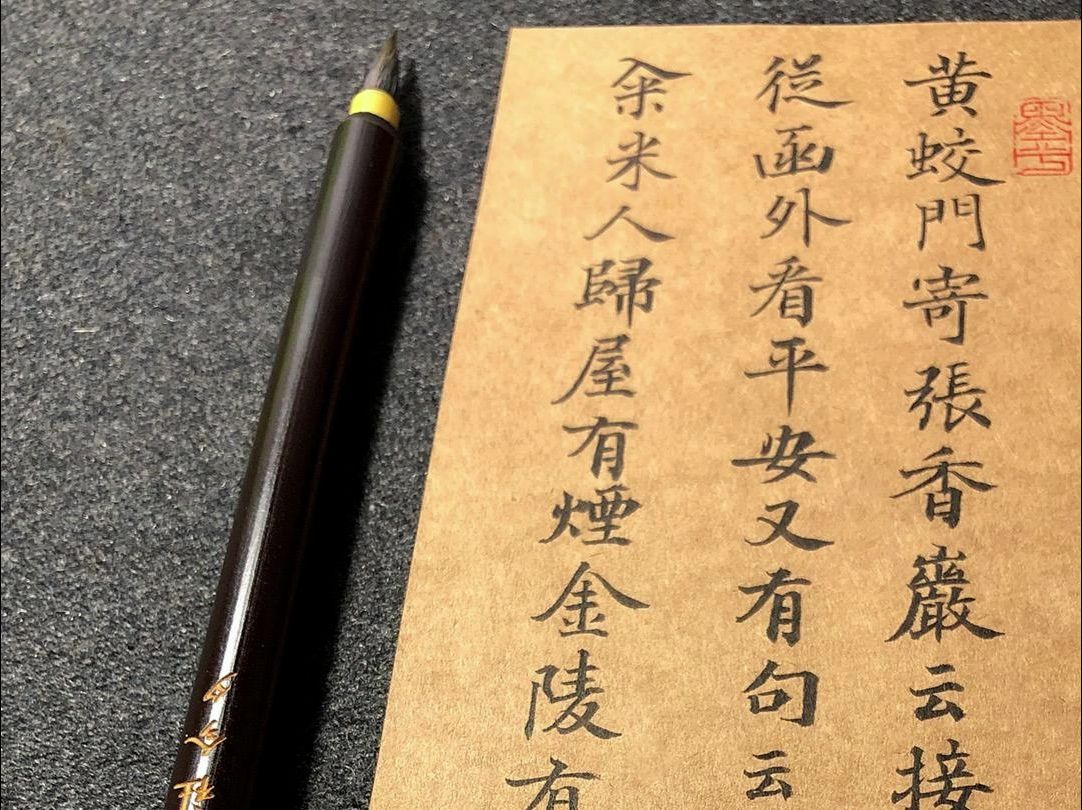 黄蛟門寄張香巖云接
從函外看平安又有句云
籴米人歸屋有煙金陵有